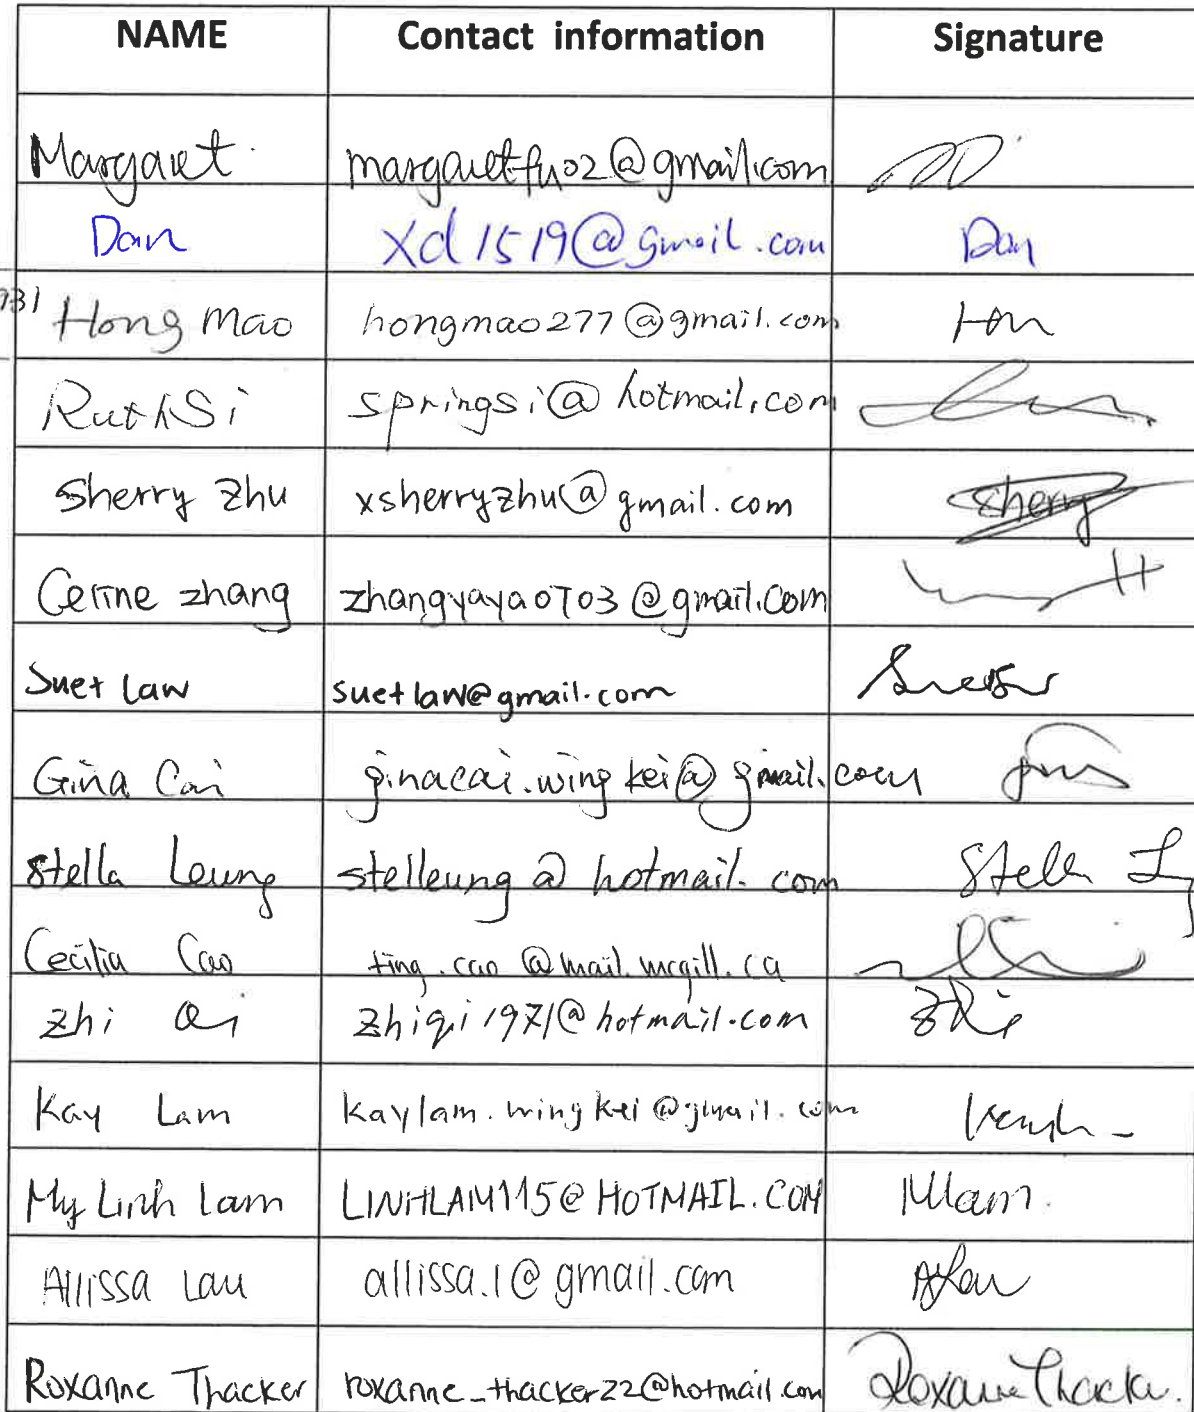 NAME Contact information Signature
Margaret margaretfu02@gmail.com
Dan xd1519@gmail.com Dan
Hong Mao hongmao277@gmail.com
Ruth Si springsi@hotmail.com
Sherry Zhu xsherryzhu@gmail.com Sherry
Cerine zhang zhangyaya0703@gmail.com
Suet Law suetlaw@gmail.com
Gina Cai ginacai.wingkei@gmail.com
Stella Leung stelleung@hotmail.com Stella
Cecilia Cao ting.cao@mail.mcgill.ca
Zhi Qi zhiqi1971@hotmail.com
Kay Lam kaylam.wingkei@gmail.com
My Linh Lam LINHLAM115@HOTMAIL.COM Mlam.
Allissa Lau allissa.l@gmail.com
Roxanne Thacker roxanne_thacker22@hotmail.com Roxanne Thacker.